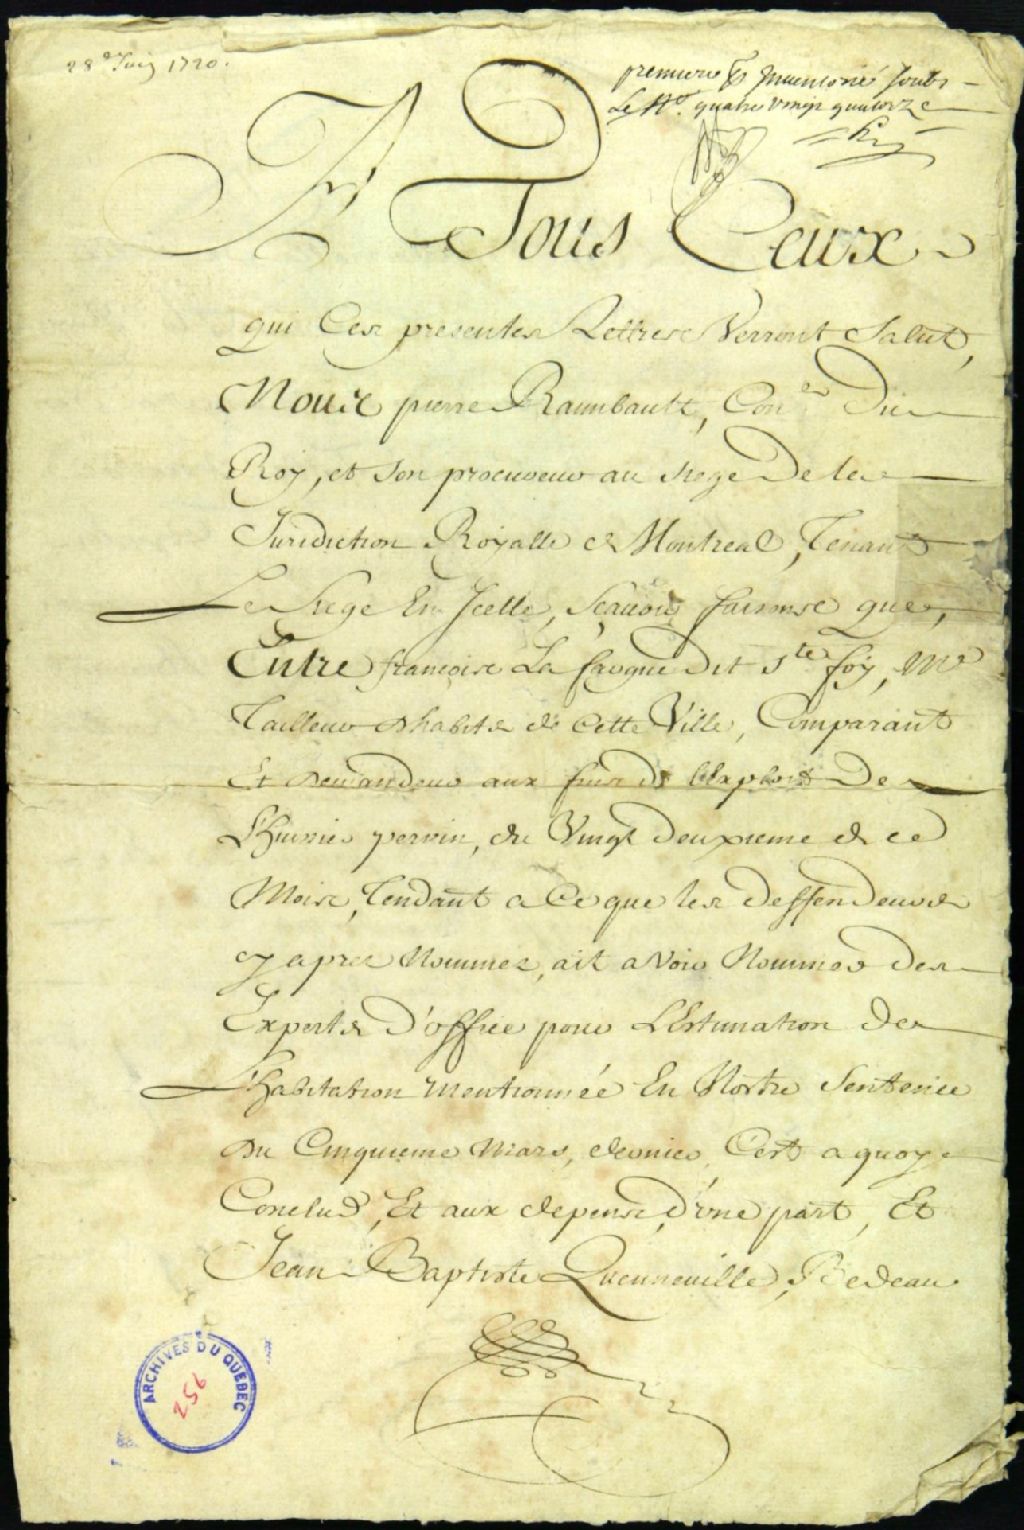 28e Juin 1720.
premiere & Inventorié soubs
Le No. quatre vingt quatorze
A Tous Ceux
qui Ces presentes Lettres Verront Salut,
Nous pierre Raimbault, Coner Du
Roy, et son procureur au siege De la
Juridiction Royalle de Montreal, Tenant
Le Siege En Icelle, Sçavoir faisons que,
Entre françois La faugue dit ste foy, Me
Tailleur d'habits de cette Ville, Comparant
Et Demandeur aux fins de l'Exploit De
L'huissier perrin, du Vingt deuxieme de ce
Mois, Tendant a Ce que les deffendeurs
cy apres Nommez, ait a Voir Nommer des
Experts D'office pour L'Estimation de
L'habitation Mentionnée En Nostre Sentence
Du Cinquieme Mars, dernier, C'est a quoy
Conclud, Et aux depens, d'une part, Et
Jean Baptiste Quenneville, Bedeau
ARCHIVES DU QUEBEC
256